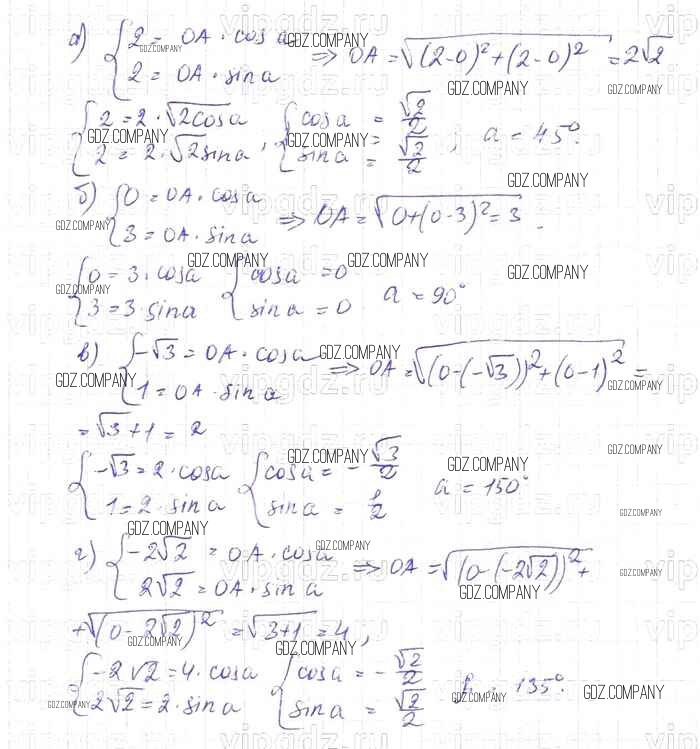 а) { 2 = OA · cos a
2 = OA · sin a => OA = √((2-0)² + (2-0)²) = 2√2
{ 2 = 2 · √2cosa
2 = 2 · √2sina , { cosa = √2/2
sina = √2/2 , a = 45°.
б) { 0 = OA · cosa
3 = OA · sina => OA = √(0+(0-3)² = 3 .
{ 0 = 3 · cosa
3 = 3 · sina { cosa = 0
sina = 0 a = 90°
в) { -√3 = OA · cosa
1 = OA · sina => OA = √((0-(-√3))² + (0-1)²) =
= √3+1 = 2
{ -√3 = 2 · cosa
1 = 2 · sina { cosa = - √3/2
sina = 1/2 a = 150°
г) { -2√2 = OA · cosa
2√2 = OA · sina => OA = √((0-(-2√2))² +
+ √(0-2√2)² = √3+1 = 4,
{ -2√2 = 4 · cosa
2√2 = 2 · sina { cosa = - √2/2
sina = √2/2 135°.
GDZ.COMPANY
vipgdz.ru